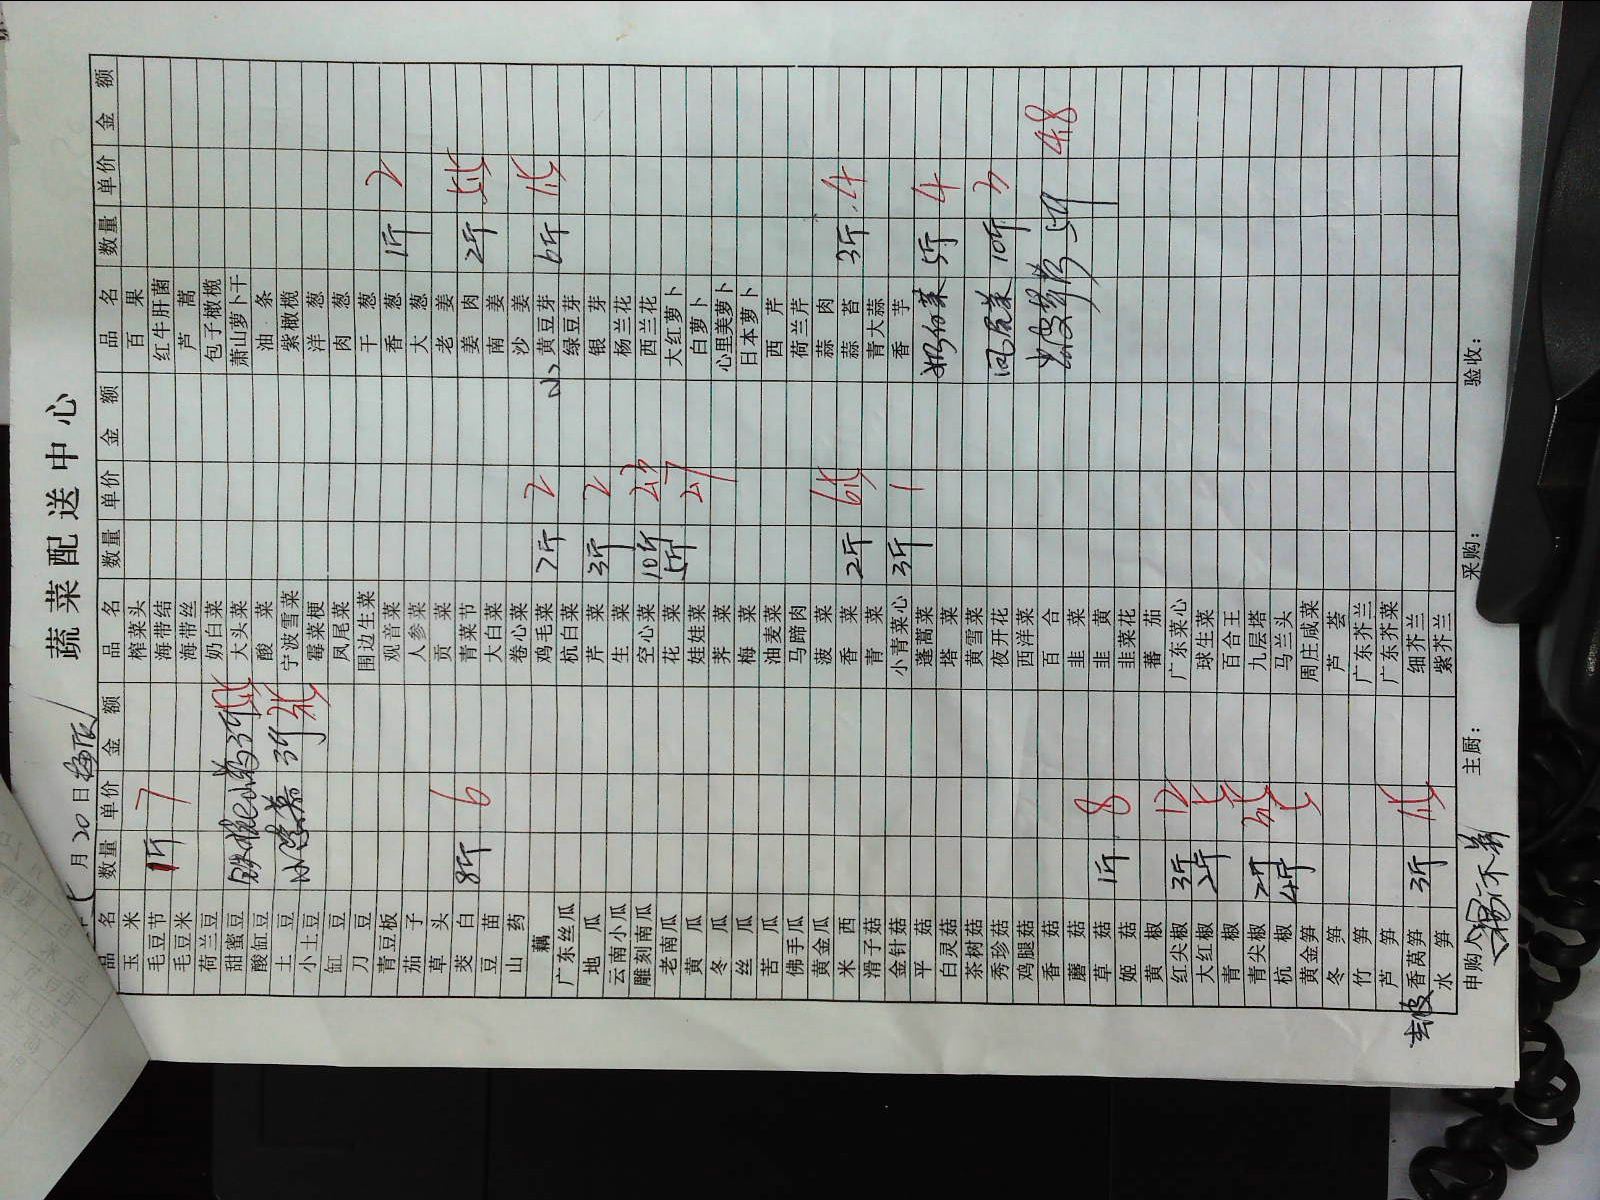 蔬菜配送中心
七月20日 梅陇
品名 数量 单价 金额 品名 数量 单价 金额 品名 数量 单价 金额
玉米
毛豆节 1斤 7
毛豆米
荷兰豆
甜蜜豆
酸缸豆
土豆
小土豆
缸豆
刀豆
青豆板
茄子
草头
茭白 8斤 6
豆苗
山药
藕
广东丝瓜
地瓜
云南小瓜
雕刻南瓜
老南瓜
黄瓜
冬瓜
丝瓜
苦瓜
佛手瓜
黄金瓜
米西
滑子菇
金针菇
平菇
白灵菇
茶树菇
秀珍菇
鸡腿菇
香菇
蘑菇
草菇 1斤 8
姬菇
黄椒
红尖椒 3斤 12
大红椒 2斤
青椒
青尖椒 2斤
杭椒 4斤
黄金笋
冬笋
竹笋
芦笋
去皮 香莴笋 3斤
水笋
榨菜头
海带结
海带丝
奶白菜
大头菜
酸菜
宁波雪菜
霉菜梗
凤尾菜
围边生菜
观音菜
人参菜
贡菜
青菜节
大白菜
卷心菜
鸡毛菜 7斤 2
杭白菜
芹菜 3斤 2
生菜
空心菜 10斤 23
花菜 5斤 27
娃娃菜
荠菜
梅菜
油麦菜
马蹄肉
菠菜
香菜 2斤
青菜
小青菜心 3斤 1
蓬蒿菜
塔菜
黄雪菜
夜开花
西洋菜
百合
韭菜
韭黄
韭菜花
蕃茄
广东菜心
球生菜
百合王
九层塔
马兰头
周庄咸菜
芦荟
广东芥兰
广东芥菜
细芥兰
紫芥兰
百果
红牛肝菌
芦蒿
包子橄榄
萧山萝卜干
油条
紫橄榄
洋葱
肉葱
干葱
香葱 1斤 2
大葱
老姜
姜肉 2斤
南姜
沙姜
小 黄豆芽 6斤
绿豆芽
银芽
杨兰花
西兰花
大红萝卜
白萝卜
心里美萝卜
日本萝卜
西芹
荷兰芹
蒜肉
蒜苔 3斤 4
青大蒜
香芋
奶白菜 5斤 4
凤尾菜 10斤 3
5斤 48
申购人: 主厨: 采购: 验收: